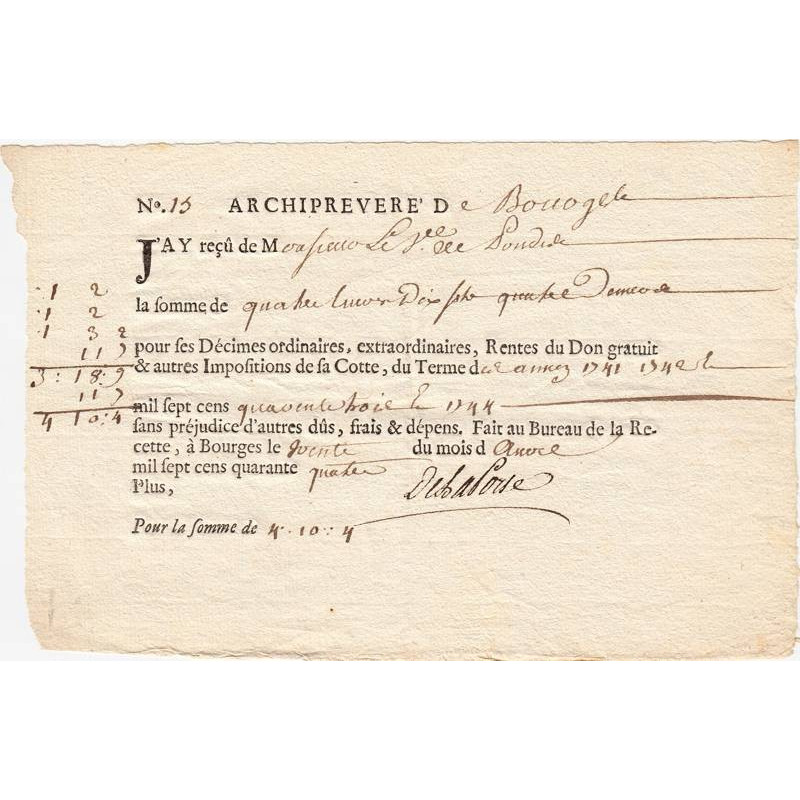 Nº. 15 ARCHIPREVERE' D e
J'AY reçû de Monsieur Le
la somme de quatre livres Dix quatre Deniers
pour ses Décimes ordinaires, extraordinaires, Rentes du Don gratuit
& autres Impositions de sa Cotte, du Terme des année 1741 1742
mil sept cens quarente trois et 1744
sans préjudice d'autres dûs, frais & dépens. Fait au Bureau de la Re-
cette, à Bourges le trente du mois d Avril
mil sept cens quarante quatre
Plus,
Pour la somme de 4 . 10 : 4
1 2
1 2
1 3 2
11 9
3 : 18 : 9
11 7
4 10 : 4